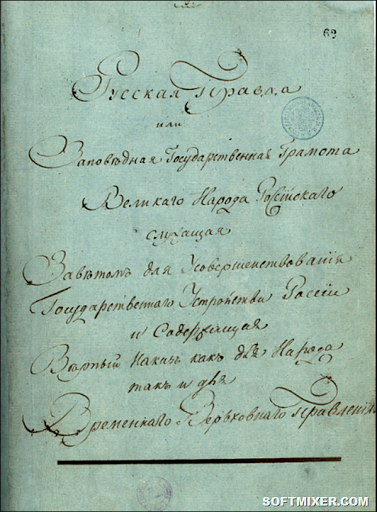 69
Русская Правда
или
Заповѣдная Государственная Грамота
Великаго Народа Россійскаго
служащая
Завѣтомъ для Усовершенствованія
Государственнаго Устройства Россіи
и Содержащая
Вѣрный Наказъ какъ для Народа
такъ и для
Временнаго Верховнаго Правленія
SOFTMIXER.COM